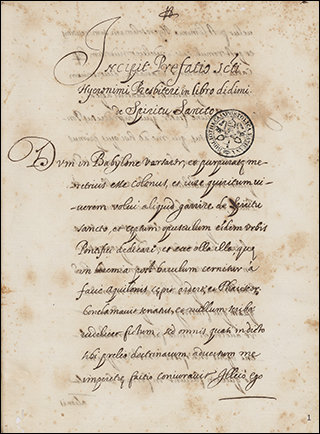 Incipit Prefatio Scti
Hyeronimi Presbiteri in libro didimi
de Spiritu Sancto
Dum in Babylone versarer, et purpuratę me-
metricis esse Colonus, et iure quiritum vi-
verem volui aliquid garrire de Spiritu
sancto, et ceptum opusculum eidem urbis
Pontifici dedicare, et ecce olla illa, quę
in Ieremia post baculum cernitur a
facie Aquilonis cepit ardere, et Phariseorum
conclamavit senatus, et nullum scriba
vel fictum, sed omnis quasi indicto
sibi prelio doctrinarum adversum me
imperitię factio coniuravit, Illico ego
1